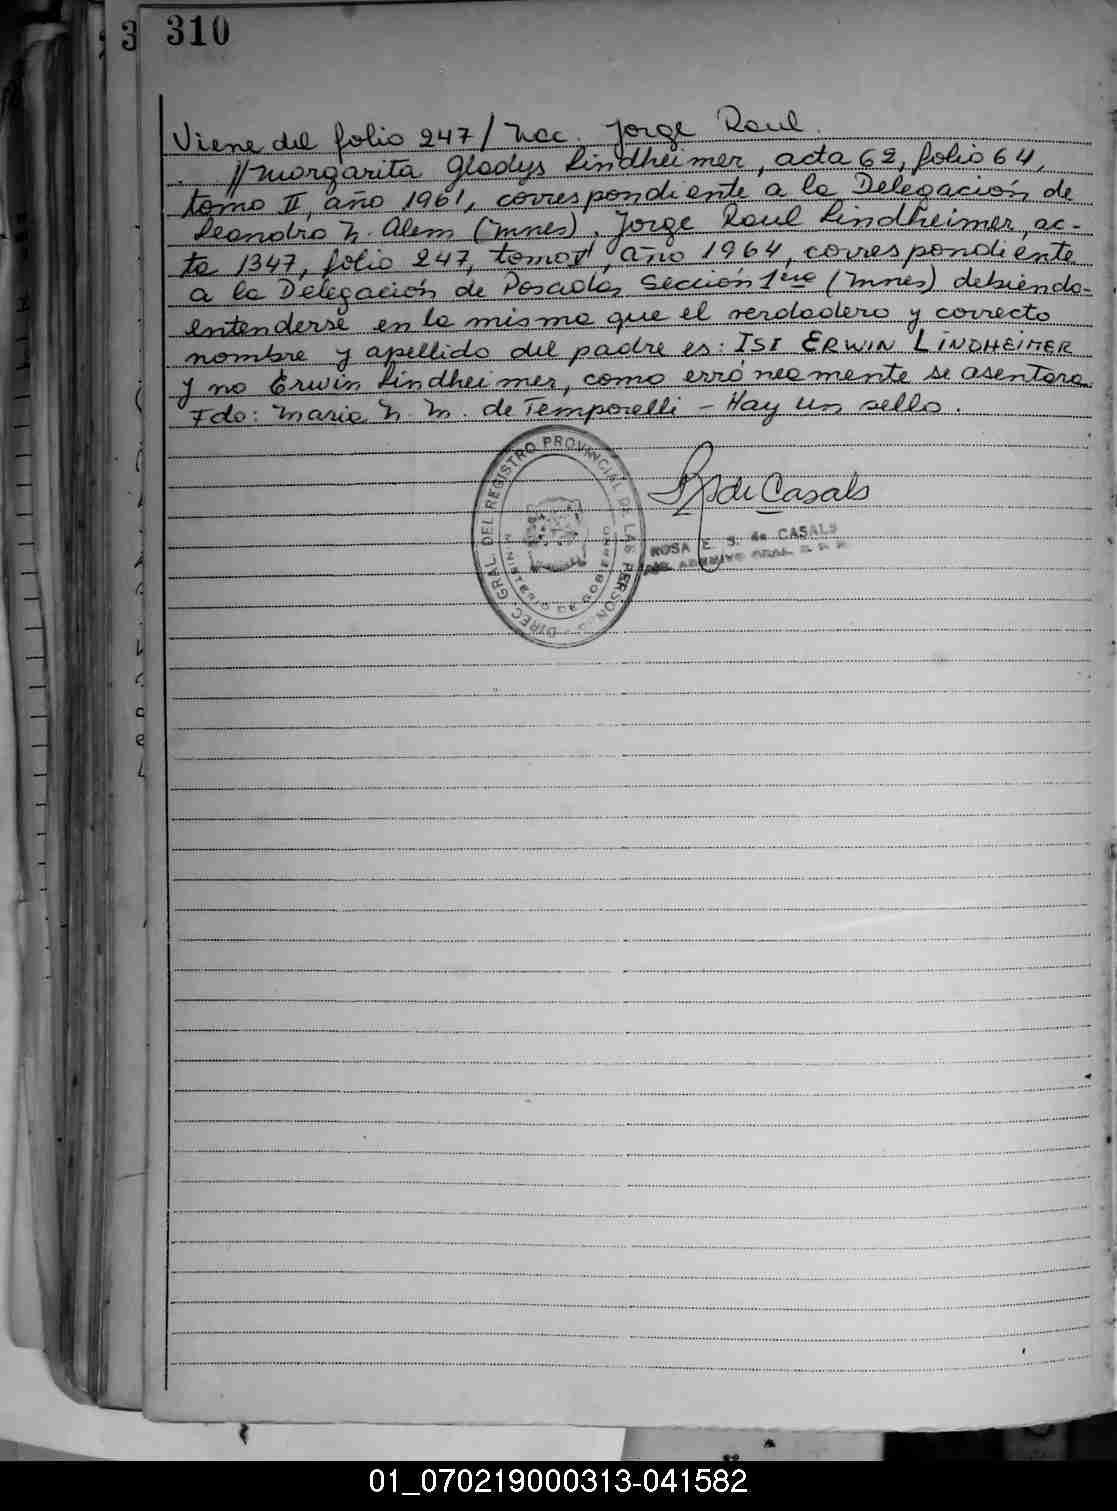 3 310
Viene del folio 247 / Nac. Jorge Raul.
// Margarita Gladys Lindheimer, acta 62, folio 64,
tomo II, año 1961, correspondiente a la Delegación de
Leandro N. Alem (Mnes). Jorge Raul Lindheimer, ac-
ta 1347, folio 247, tomo, año 1964, correspondiente
a la Delegación de Posadas Sección 1era (Mnes) debiendo-
entenderse en la misma que el verdadero y correcto
nombre y apellido del padre es: ISI ERWIN LINDHEIMER
y no Erwin Lindheimer, como erróneamente se asentara.
Fdo: Maria N. M. de Temporelli - Hay un sello.
DIREC. GRAL. DEL REGISTRO PROVINCIAL DE LAS PERSONAS
MINISTERIO DE GOBIERNO
de Casals
ROSA E. S. de CASALS
ARCHIVO GRAL.
01_070219000313-041582